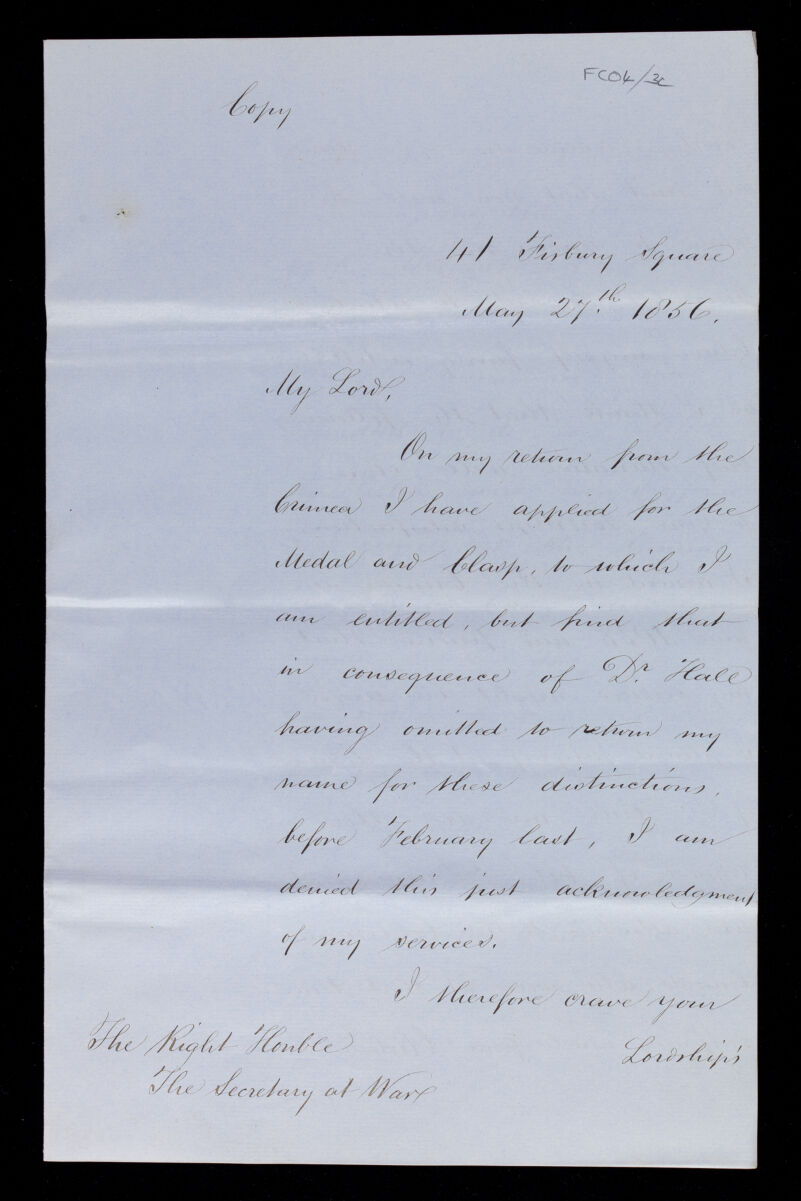 FCO4/3c
Copy
41 Fisbury Square
May 27.th 1856.
My Lord,
On my return from the
Crimea I have applied for the
Medal and Clasp, to which I
am entitled, but find that
in consequence of Dr. Hall
having omitted to return my
name for these distinctions,
before February last, I am
denied this just acknowledgment
of my services.
I therefore crave your
Lordship's
The Right Honble
The Secretary at War